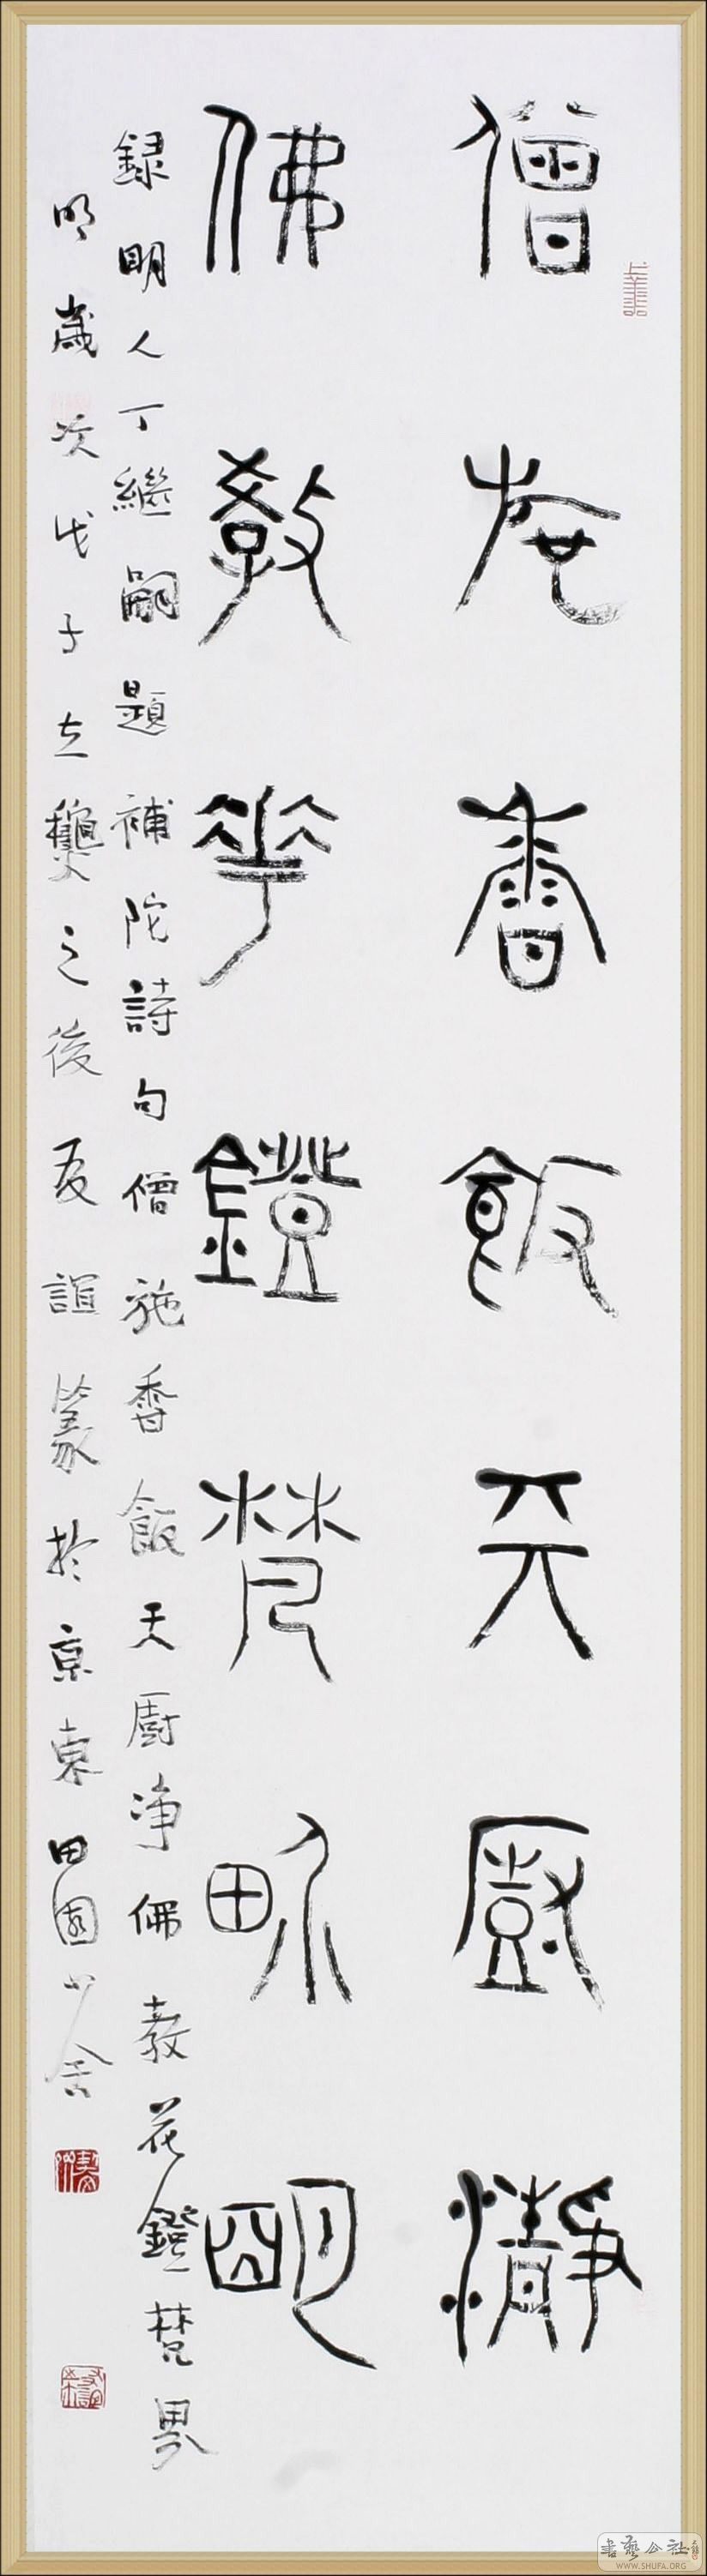 僧施香飯天廚瀞
佛教華鐙梵界明
録明人丁繼嗣題補陀詩句僧施香飯天廚净佛教花鐙梵界
明歲次戊子立龝之後友誼篆於京東田園小舍
書藝公社
WWW.SHUFA.ORG